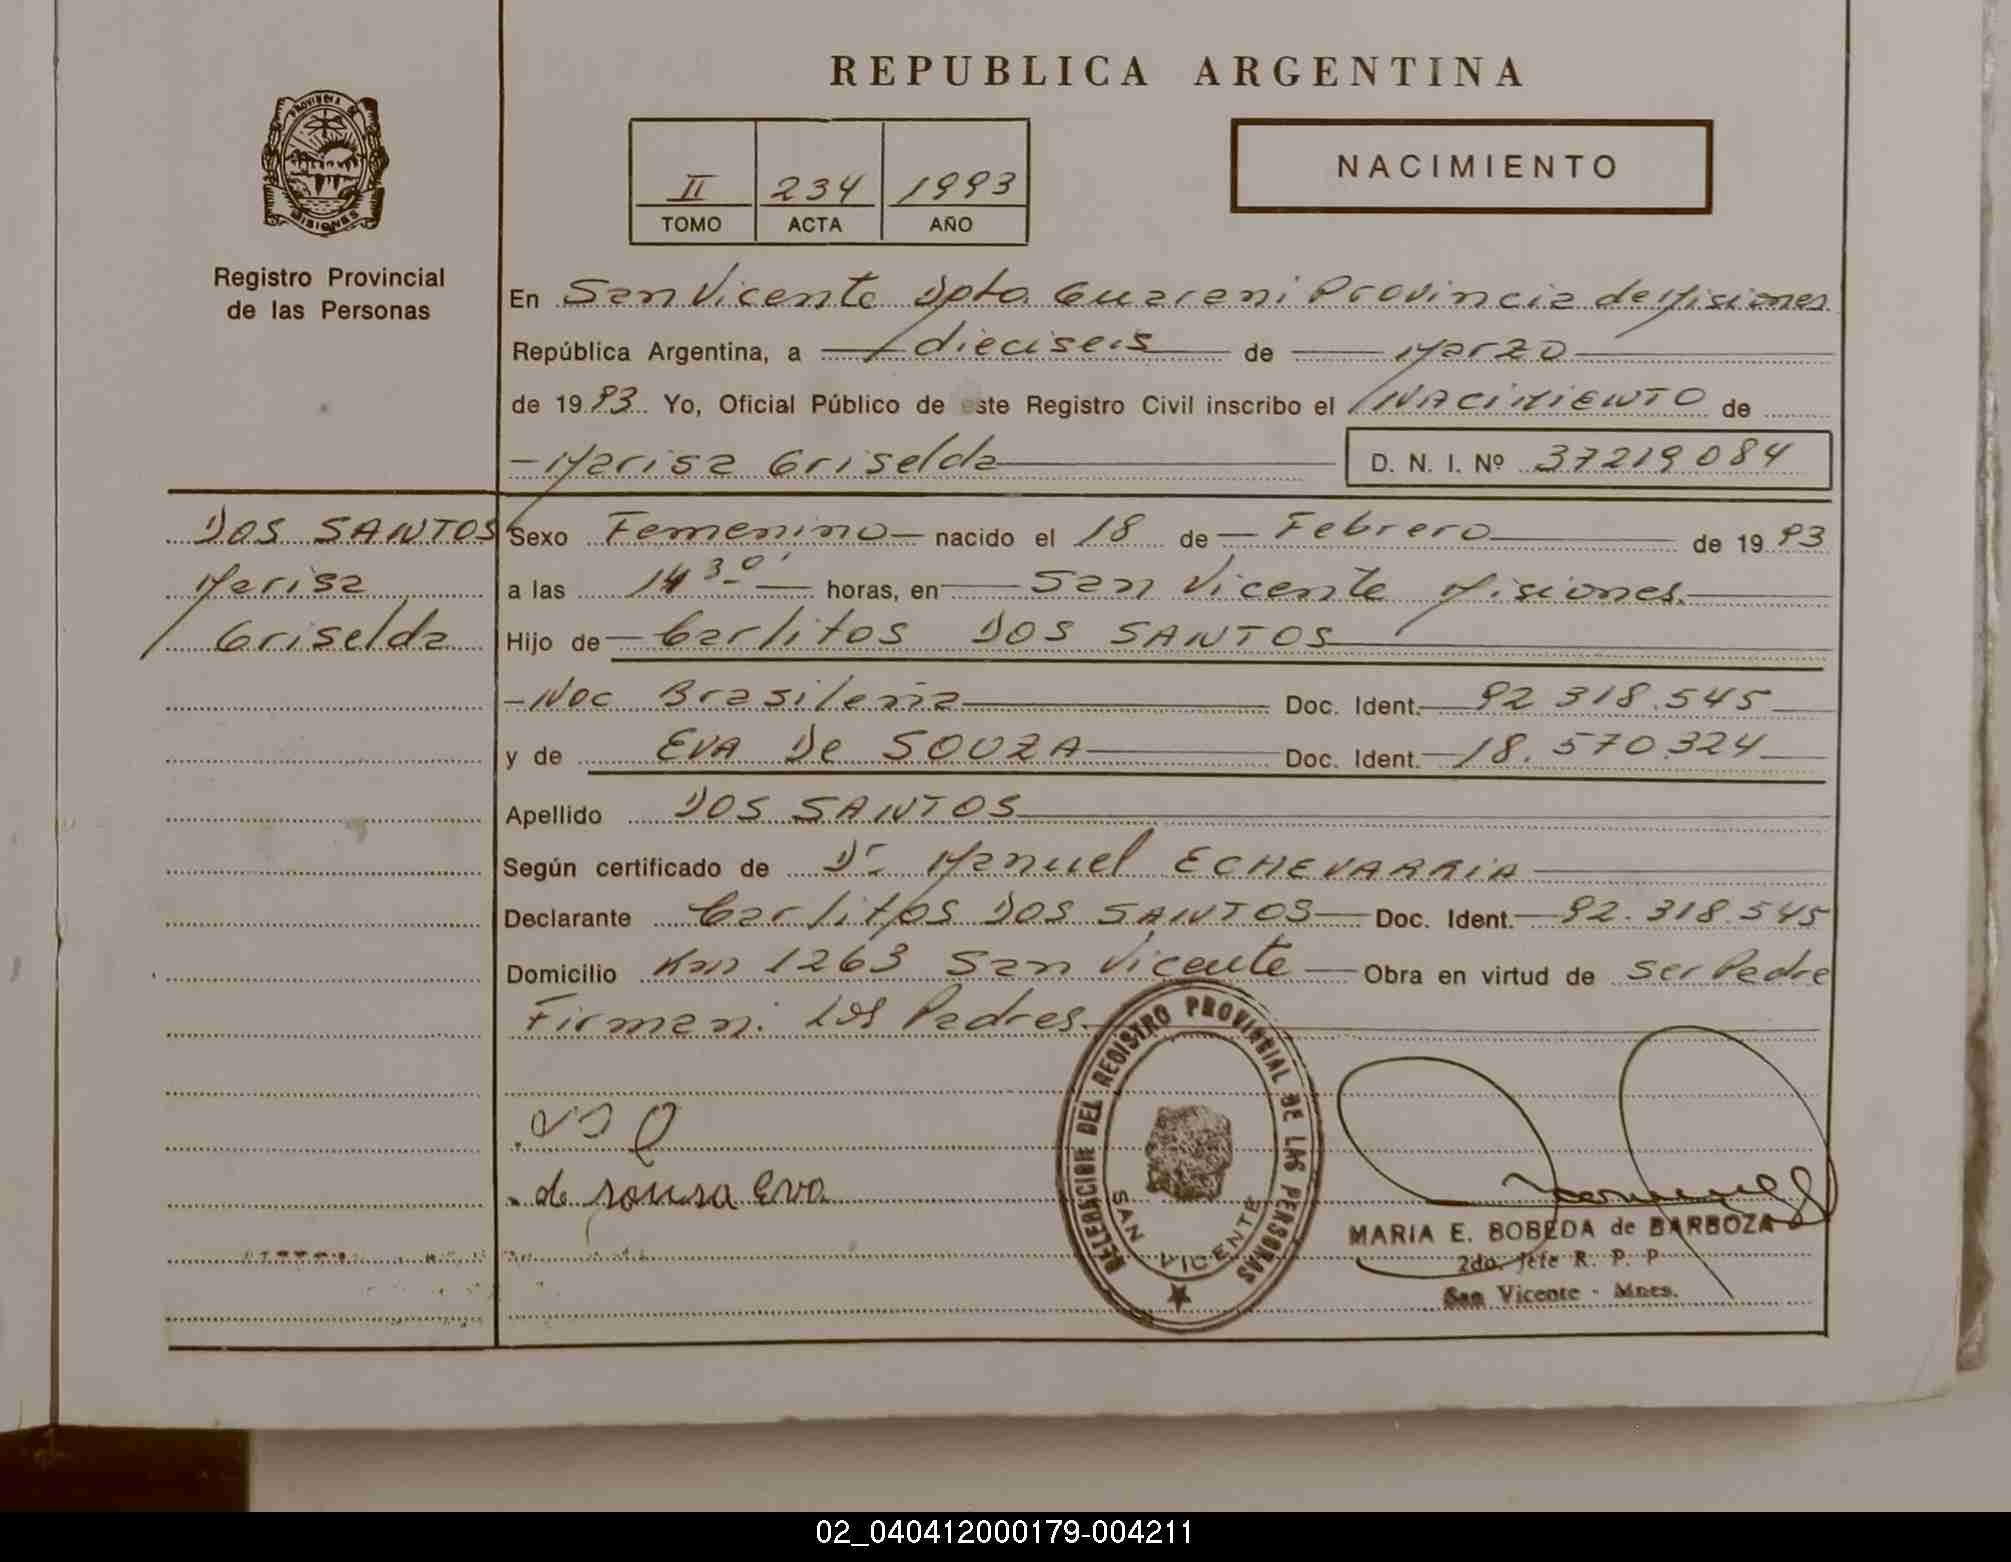 REPUBLICA ARGENTINA
PROVINCIA DE
MISIONES
Registro Provincial
de las Personas
II 234 1993
TOMO ACTA AÑO
NACIMIENTO
En San Vicente Dpto. Guarani Provincia de Misiones
República Argentina, a dieciseis de Marzo
de 1993 Yo, Oficial Público de este Registro Civil inscribo el NACIMIENTO de
Marisa Griselda D. N. I. Nº 37219084
DOS SANTOS
Marisa
Griselda
Sexo Femenino nacido el 18 de Febrero de 1993
a las 14 30' horas, en San Vicente Misiones.
Hijo de Carlitos DOS SANTOS
Nac Brasileña Doc. Ident. 92 318.545
y de EVA De SOUZA Doc. Ident. 18.570.324
Apellido DOS SANTOS
Según certificado de Dr Manuel ECHEVARRIA
Declarante Carlitos DOS SANTOS Doc. Ident. 92.318.545
Domicilio Km 1263 San Vicente Obra en virtud de ser Padre
Firman: Los Padres
de sousa Eva
DELEGACION DEL REGISTRO PROVINCIAL DE LAS PERSONAS
SAN VICENTE
MARIA E. BOBEDA de BARBOZA
2do. Jefe R. P. P
San Vicente - Mnes.
02_040412000179-004211